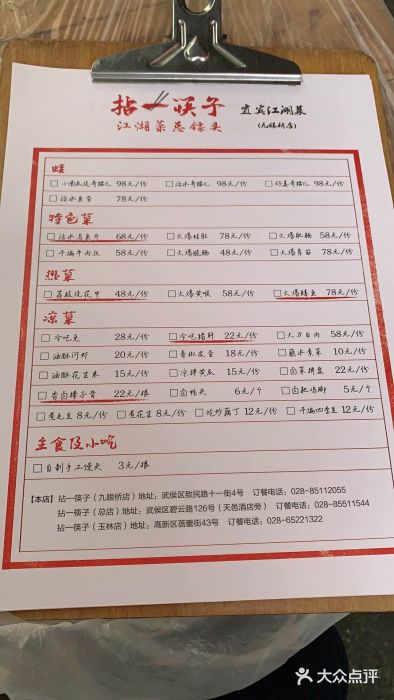 拈一筷子 宜宾江湖菜
江湖菜总舵头 (九眼桥店)
98元/份 活水青猫儿 98元/份 仔姜青猫儿 98元/份
活水鱼蛋 78元/份
特色菜
活水乌鱼片 68元/份 火爆鹅肚 78元/份 火爆肥肠 58元/份
干煸牛肉丝 58元/份 火爆脆肠 48元/份 78元/份
热菜
荔枝烧花甲 48元/份 火爆黄喉 58元/份 火爆鳝鱼 78元/份
凉菜
冷吃兔 28元/份 冷吃猪肝 22元/份 大刀白肉 58元/份
油酥河虾 20元/份 青椒皮蛋 18元/份 蘸水素菜 10元/份
油酥花生米 15元/份 凉拌黄瓜 15元/份 卤菜拼盘 22元/份
香卤棒子骨 22元/根 卤鸭头 6元/个 卤鸡脚 5元/个
煮毛豆 8元/份 煮花生 8元/份 炝炒藕丁 12元/份 干煸四季豆 12元/份
主食及小吃
自制手工馒头 3元/根
【本店】拈一筷子（九眼桥店）地址：武侯区致民路十一街4号 订餐电话：028-85112055
拈一筷子（总店）地址：武侯区碧云路126号（天邑酒店旁） 订餐电话：028-85511544
拈一筷子（玉林店）地址：高新区蓓蕾街43号 订餐电话：028-65221322
大众点评